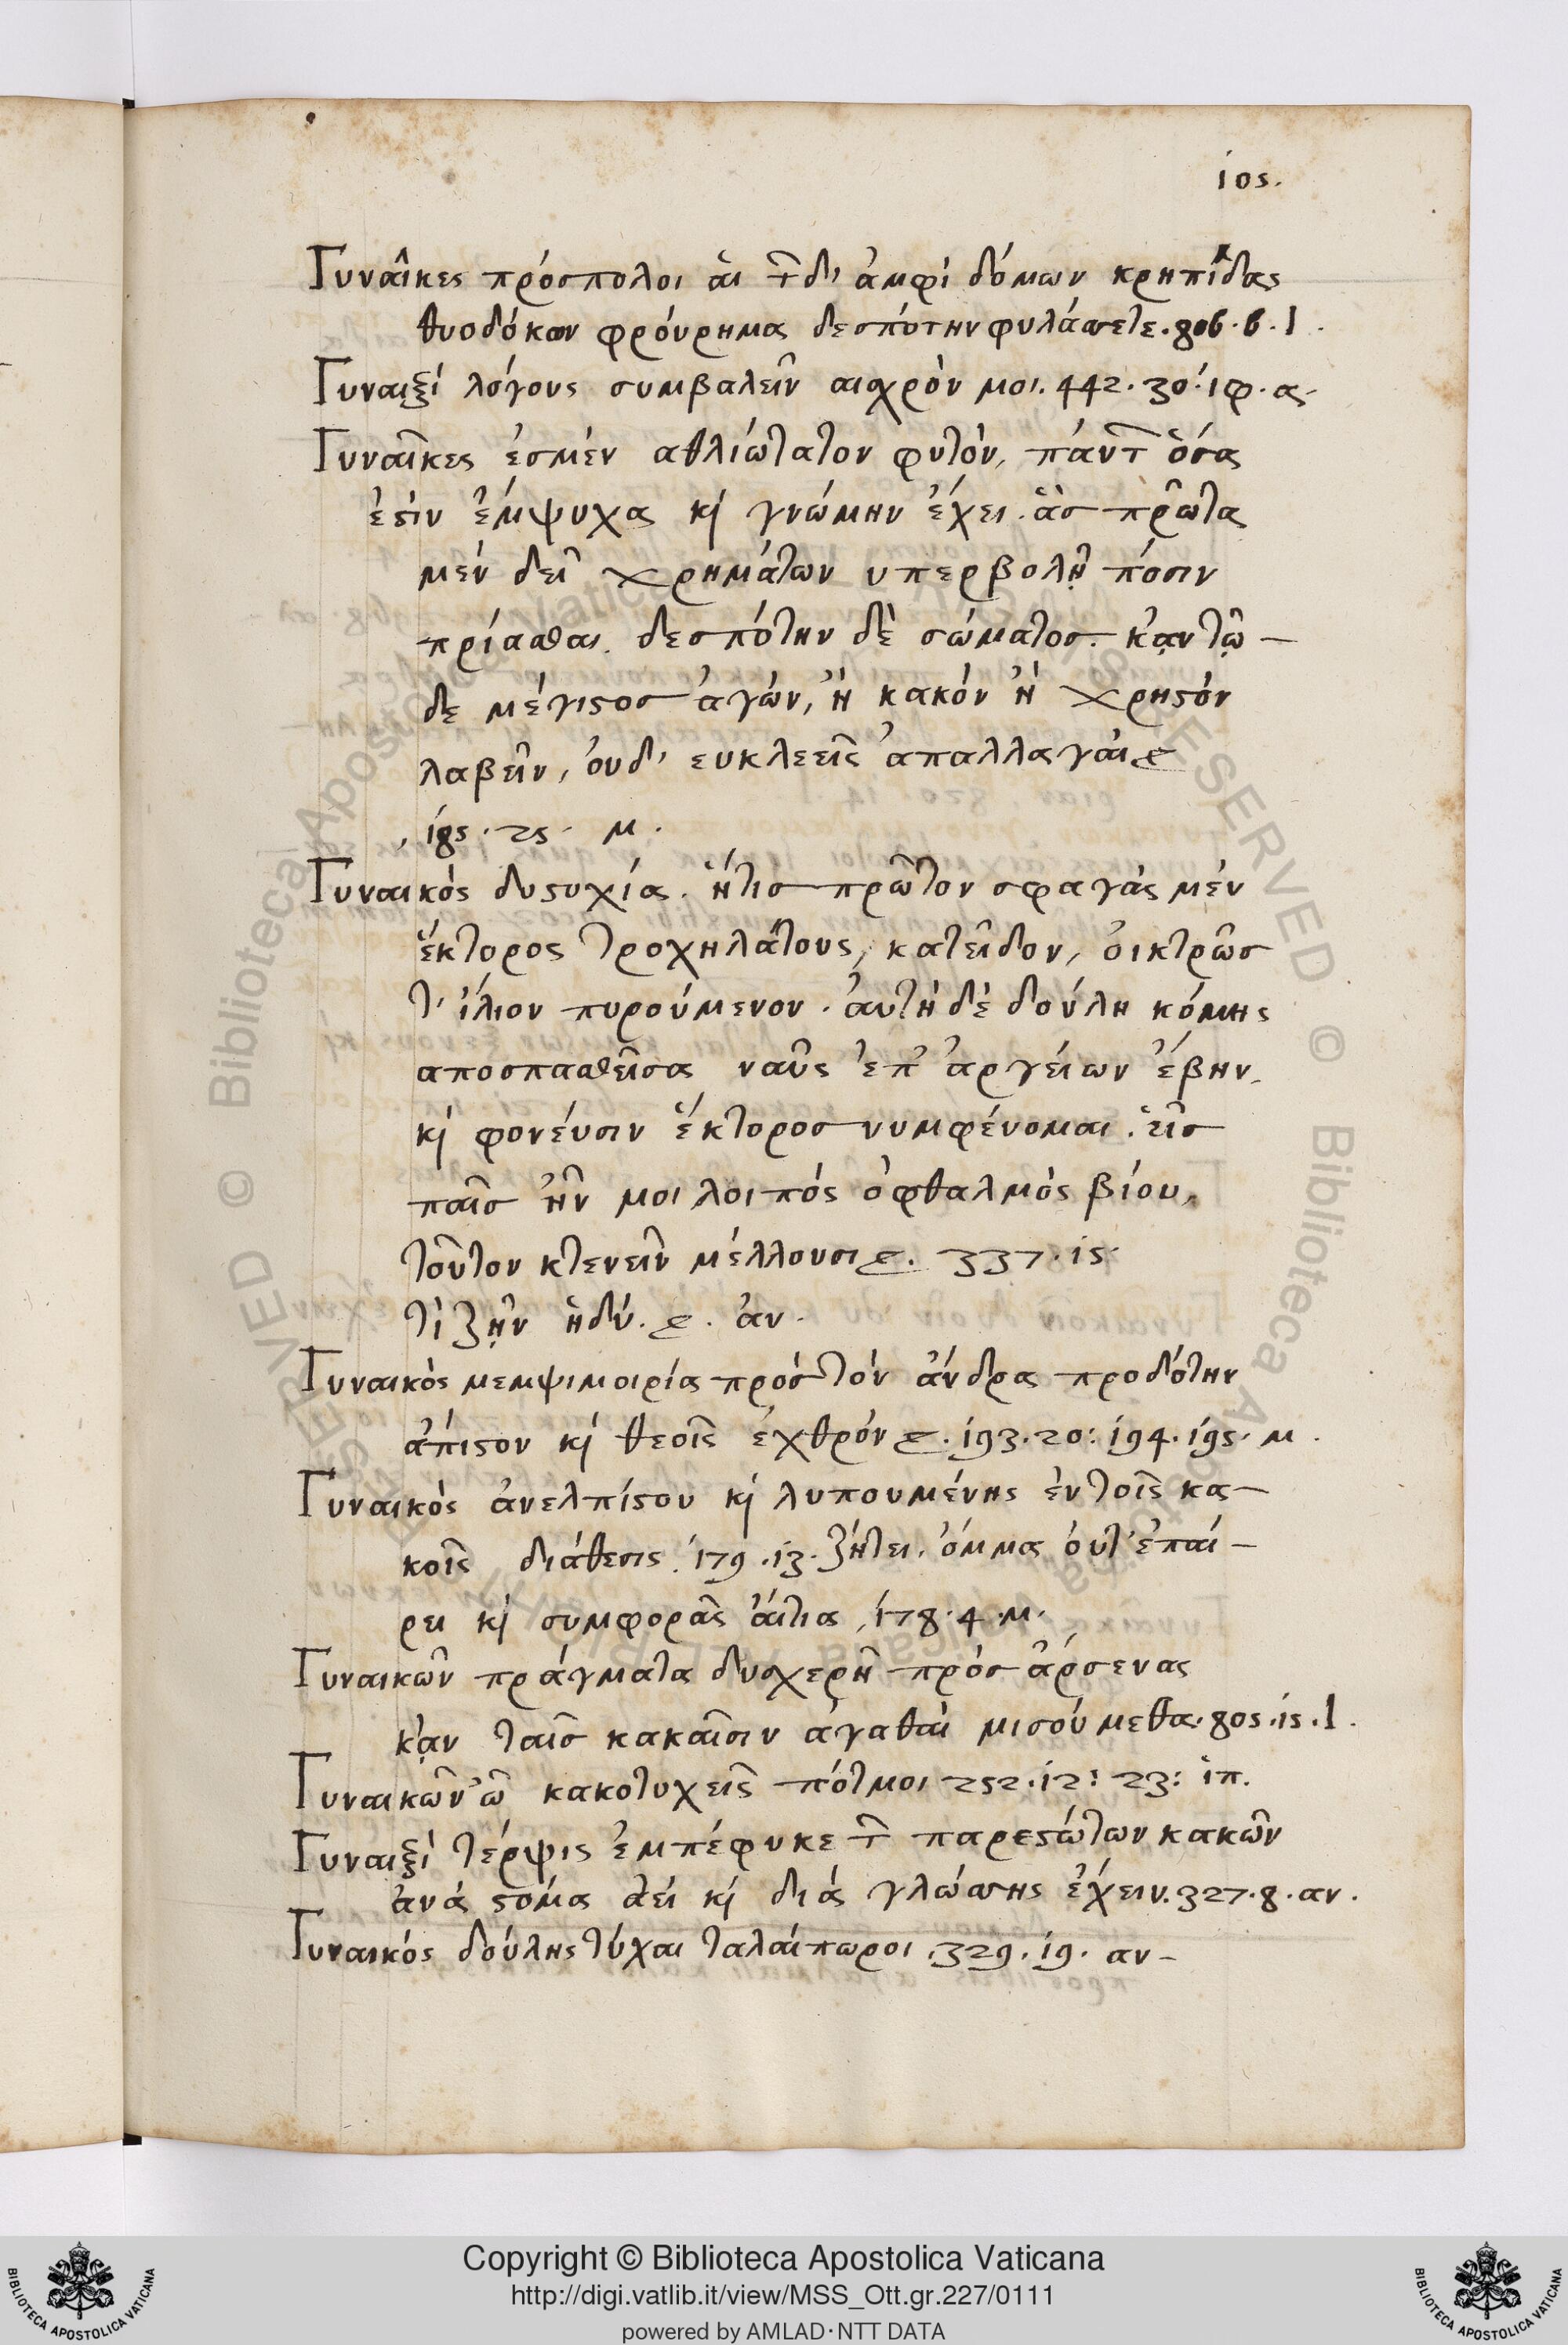 ios.
Γυναῖκες πρόσπολοι ἁι τῶνδ' ἀμφὶ δόμων κρηπῖδας
θυοδόκων φρόυρημας δεσπότην φυλάσσετε. 806. 6. Ι.
Γυναιξί λόγους συμβαλεῖν αισχρὸν μοι. 442. 30: ιφ. α.
Γυναῖκες ἐσμὲν αθλιώτατον φυτὸν, πάντων ὅσα
ἐστὶν ἔμψυχα κὶ γνώμην ἔχει. ἃσ πρῶτα
μέν δεῖ χρημάτων υπερβολῇ πόσιν
πρίασθαι. δεσπότην δὲ σώματοσ. κᾀν τῷ-
δε μέγιστοσ ἀγών, ἢ κακόν ἢ χρηστόν
λαβεῖν, ὀυδ' ευκλεεῖς ἀπαλλαγάι &
, i8s. 25. μ.
Γυναικὸς δυστυχία. ἥτισ πρῶτον σφαγὰς μέν
ἕκτορος τροχηλάτους, κατεῖδον, ὀικτρῶσ
τ' ἴλιον πυρούμενον. ἀυτὴ δὲ δούλη κόμης
αποσπασθεῖσα ναῦς ἐπ' ἀργείων ἔβην.
κὶ φονέυσιν ἕκτοροσ νυμφένομαι. εἷσ
παῖσ ἦν μοι λοιπός ὀφθαλμὸς βίου,
τοῦτον κτενεῖν μέλλουσι &. 337. is.
τὶ ζῇν ἡδύ. &. ἀν.
Γυναικὸς μεμψιμοιρία πρόσ τὸν ἄνδρα προδότην
ἄπιστον κὶ θεοῖς ἐχθρόν &. i93. 20: i94. i95. μ.
Γυναικὸς ἀνελπίστου κὶ λυπουμένης ἐν τοῖς κα-
κοῖς διάθεσις. i79. i3. ζήτει. ὄμμα ὀυτ' ἐπαί-
ρει κὶ συμφορᾶς ἀίτια, i78. 4. μ.
Γυναικῶν πράγματα δυσχερῆ πρὸσ ἄρσενας
κᾀν ταῖσ κακαῖσιν ἀγαθαὶ μισούμεθα. 805. is. Ι.
Γυναικῶν ὦ κακοτυχεῖς πότμοι 252. i2: 23: ἱπ.
Γυναιξὶ τέρψις ἐμπέφυκε τῶν παρεστώτων κακῶν
ἀνά στόμα ἀεί κὶ διά γλώσσης ἔχειν. 327. 8. αν.
Γυναικός δούλης τύχαι ταλαίπωροι. 329. i9. αν-
Copyright © Biblioteca Apostolica Vaticana
http://digi.vatlib.it/view/MSS_Ott.gr.227/0111
powered by AMLAD·NTT DATA